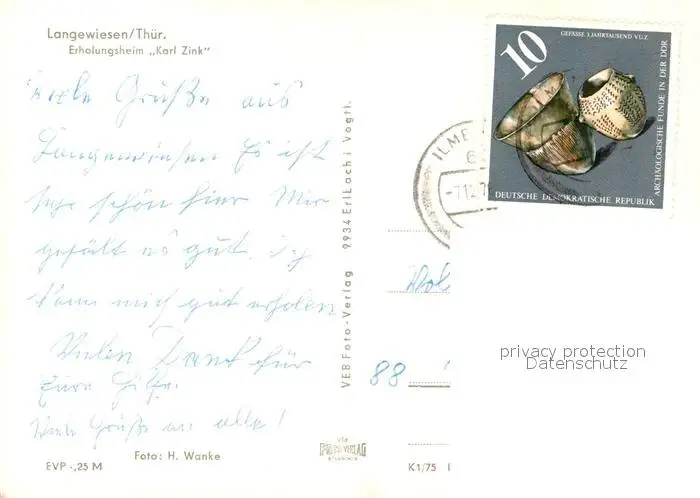 Langewiesen/Thür.
Erholungsheim „Karl Zink"
Viele Grüße aus
Langewiesen Es ist
sehr schön hier Mir
gefält es gut. Ich
kann mich gut erholen
Vielen Dank für
Eure Hilfe.
Viele Grüße an alle!
Foto: H. Wanke
EVP -,25 M
VEB Foto-Verlag 9934 Erlbach i Vogtl.
K1/75
10
GEFÄSSE 1. JAHRTAUSEND V.U.Z.
ARCHÄOLOGISCHE FUNDE IN DER DDR
DEUTSCHE DEMOKRATISCHE REPUBLIK
ILME
-7.12.7
88
privacy protection
Datenschutz